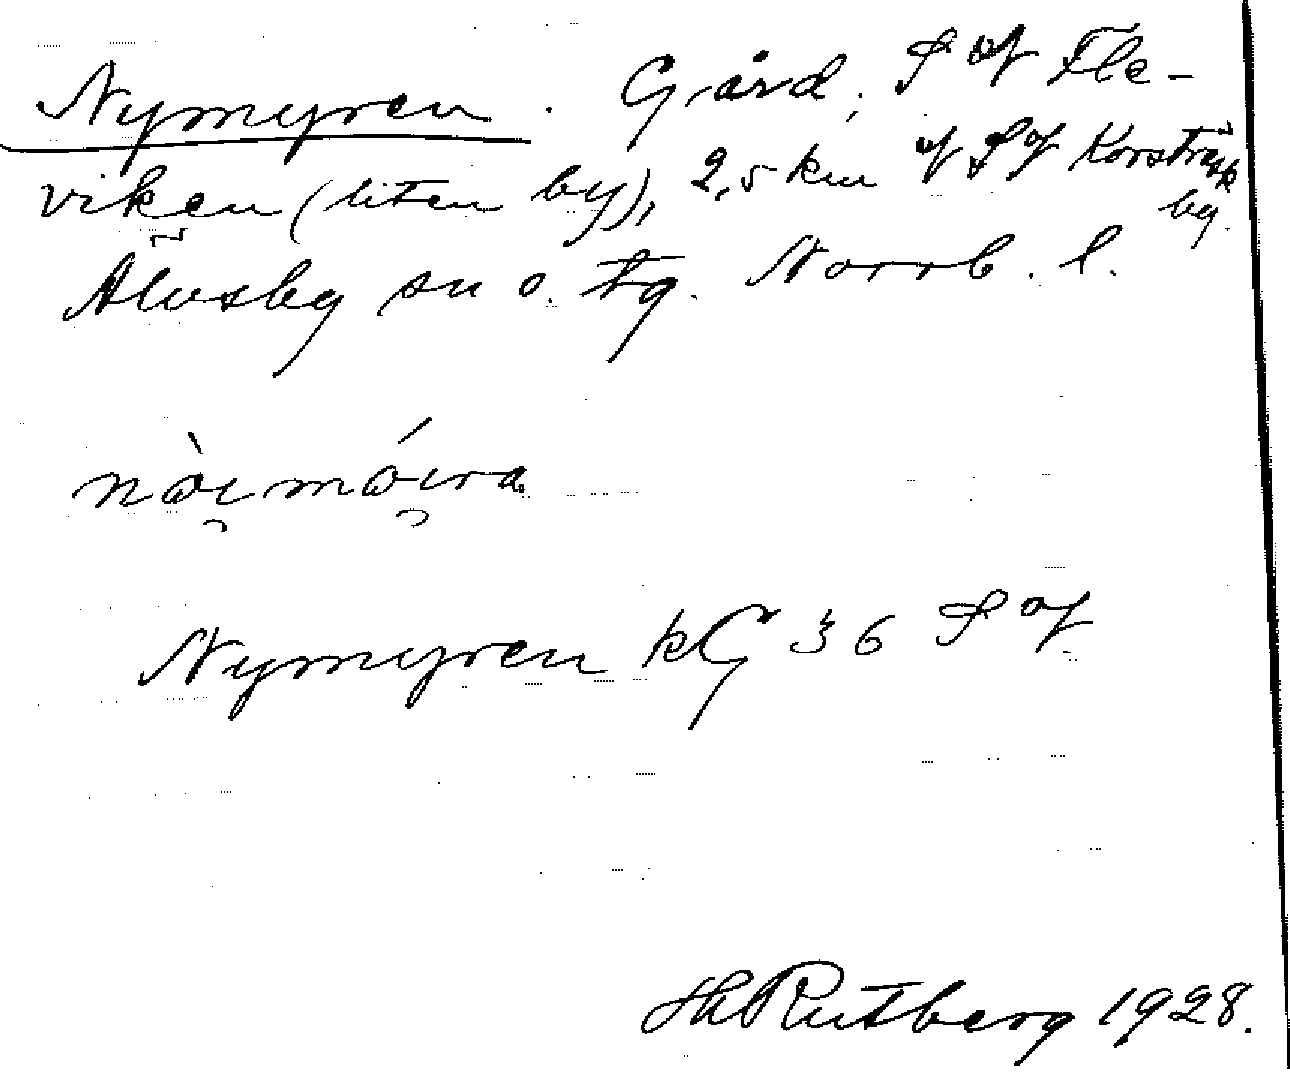 Nymyren. Gård, S of Fle-
viken (liten by), 2,5 km of S of Korsträsk
by.
Älvsby sn o. tg. Norrb. l.
nòi̯mói̯ra
Nymyren kG 36 S of
Hh Rutberg 1928.